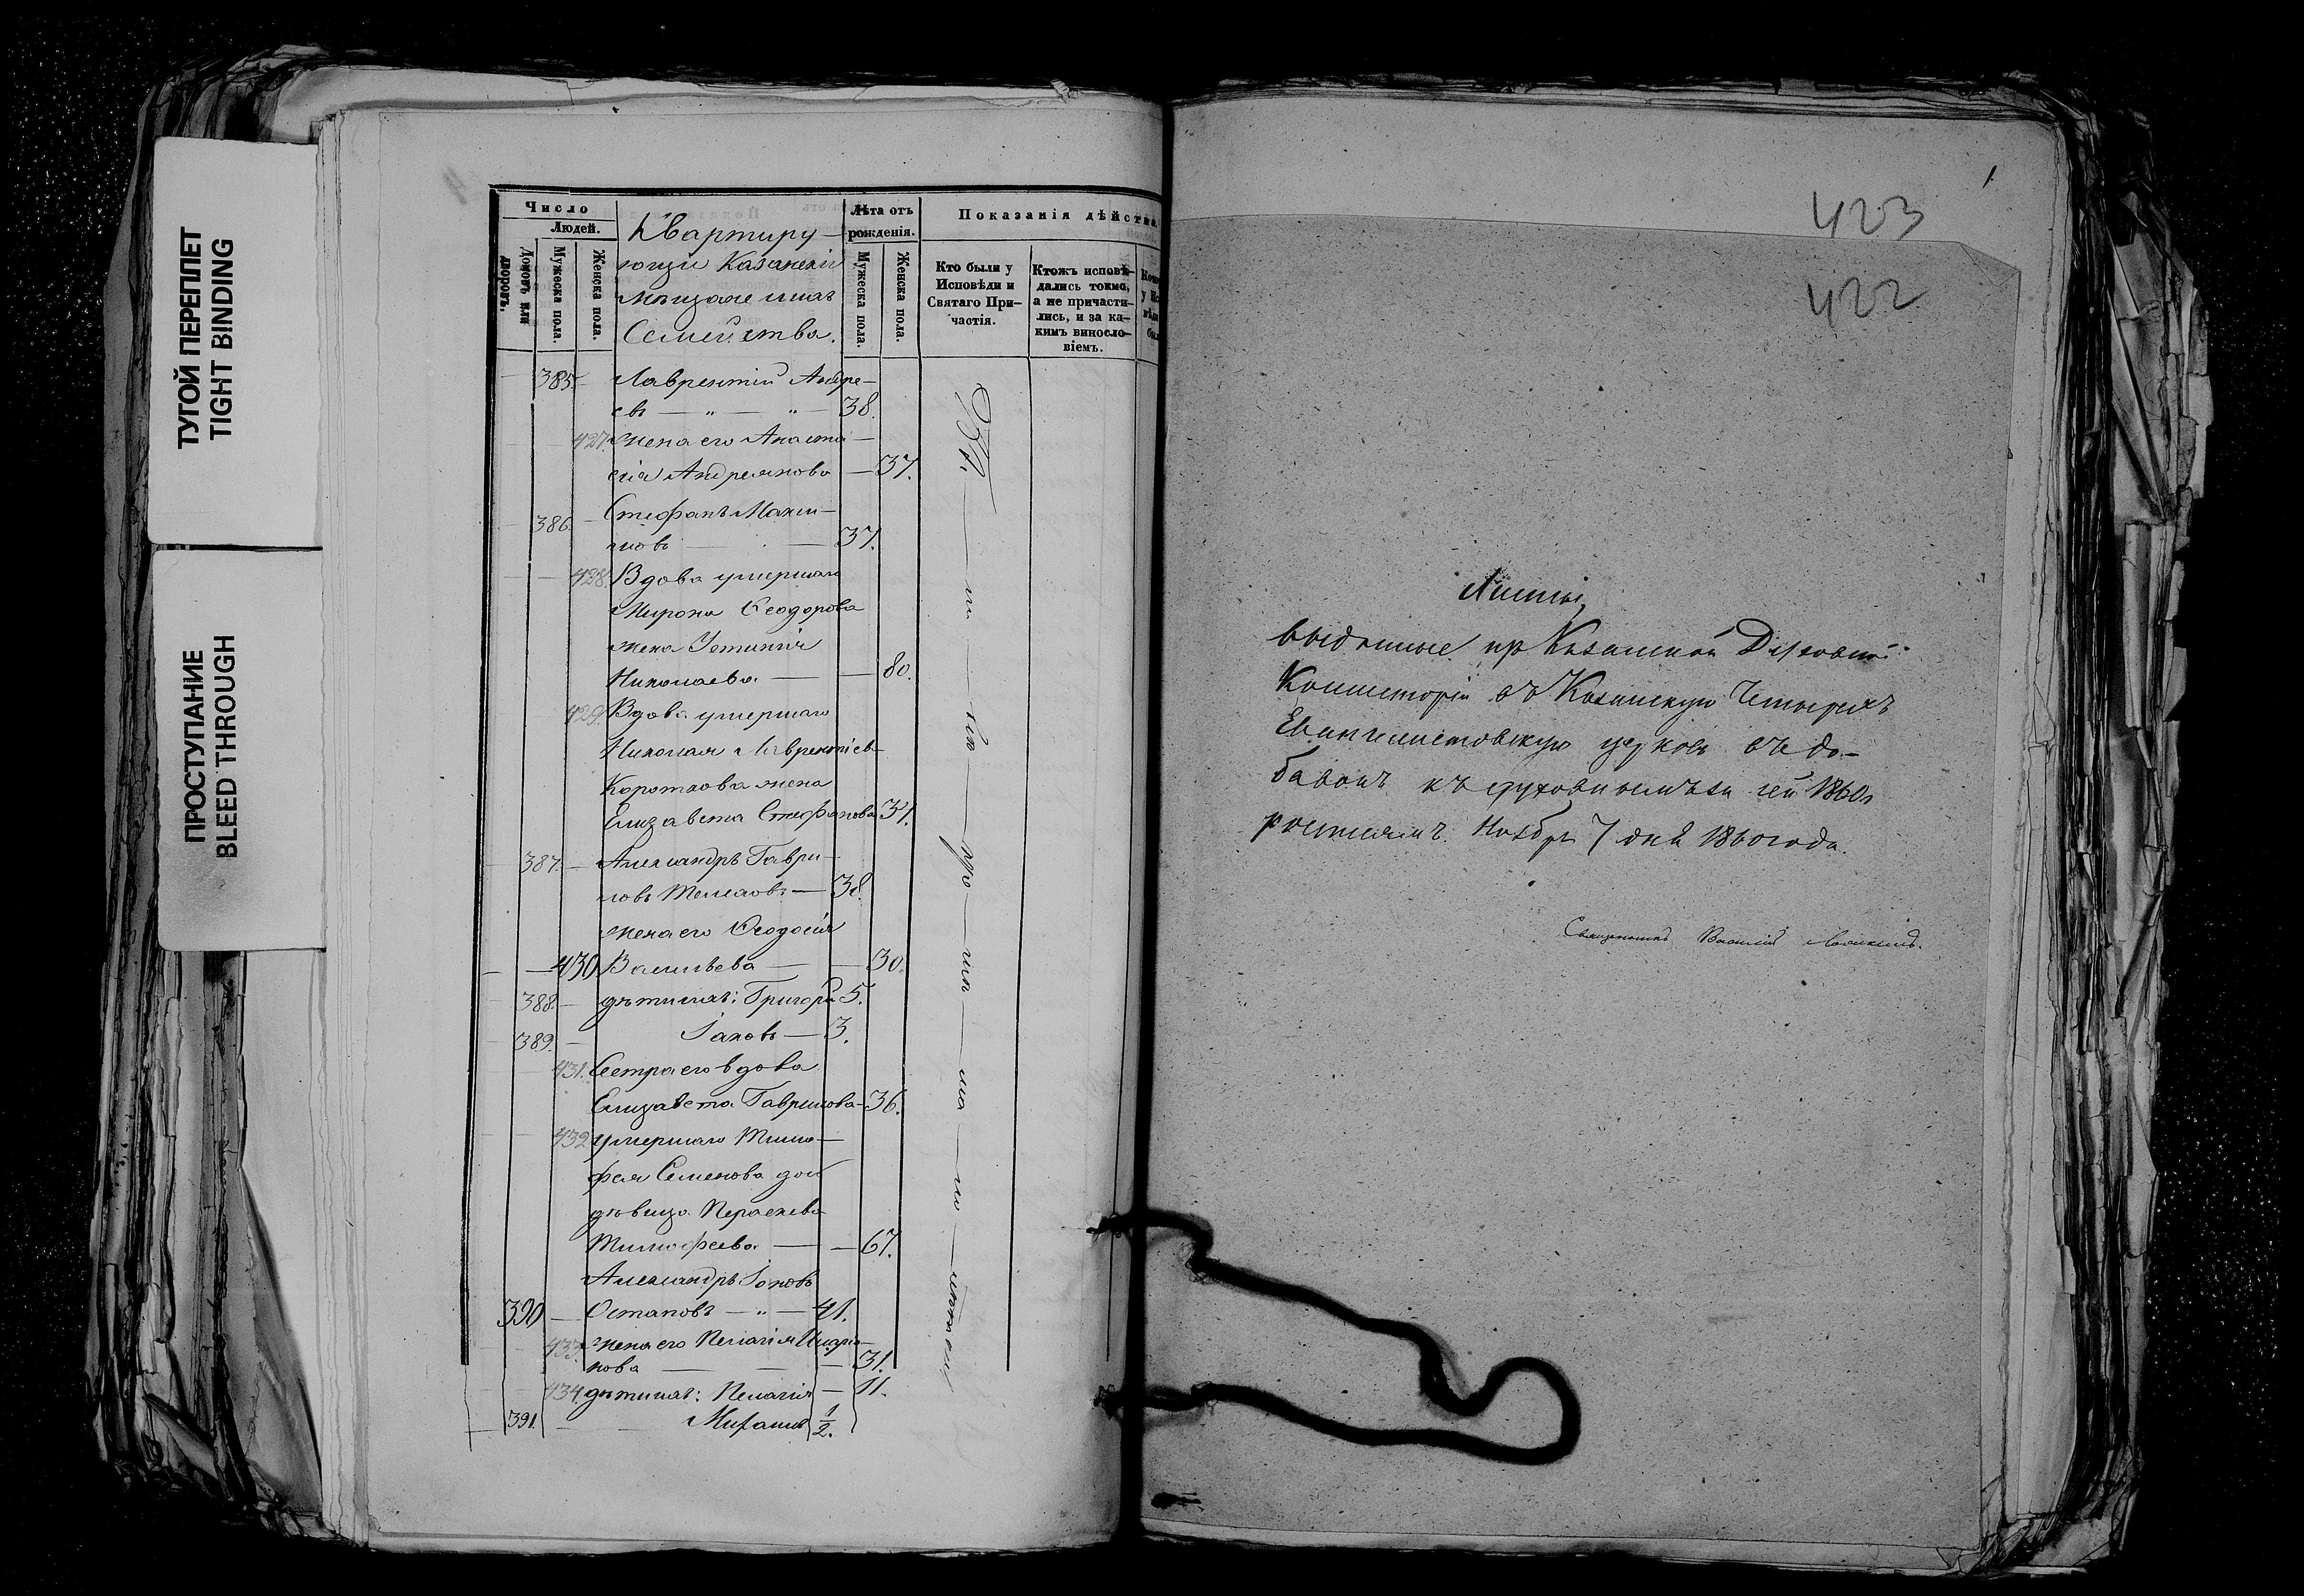 ТУГОЙ ПЕРЕПЛЕТ
TIGHT BINDING
ПРОСТУПАНИЕ
BLEED THROUGH
Число
Людей.
Домовъ или дворовъ.
Мужеска пола.
Женска пола.
Квартиру-
ющіи Казанскіи
мѣщане и ихъ
Семейства.
Лѣта отъ
рожденія.
Мужеска пола.
Женска пола.
Показанія дѣйства
Кто были у
Исповѣди и
Святаго При-
частія.
Ктожъ исповѣ-
дались токмо,
а не причасти-
лись, и за ка-
кимъ виносло-
віемъ.
385. Лаврентій Андре-
евъ — " — " — 38.
427. жена его Анаста-
сія Андреянова — 37.
386. Стефанъ Макси-
мовъ — 37.
428. Вдова умершаго
Мирона Ѳеодорова
жена Устинія
Николаева — 80.
429. Вдова умершаго
Николая Лаврентіева
Короткова жена
Елизавета Стефанова 31.
387. Александръ Гаври-
ловъ — 38.
жена его Ѳеодосія
430 Васильева — 30.
388. дѣти ихъ: Григорій 5.
389. Іаковъ — 3.
431. Сестра его вдова
Елизавета Гаврилова — 36.
432 умершаго Тимо-
фея Семенова дочь
дѣвица Параскева
Тимофеева — 67.
Александръ Іоновъ
390 — Остаповъ — " — 41.
433. жена его Пелагія
нова — 31.
434 дѣти ихъ: Пелагія — 11.
391. Михаилъ 1/2.
1.
423
422
Листы,
выданные Казанской Духовной
Консисторіи въ Казанскую Четырехъ
Евангелистовскую церковь въ до-
бавокъ къ сей 1860
росписямъ. Ноября 7 дня 1860 года.
Священникъ Василій